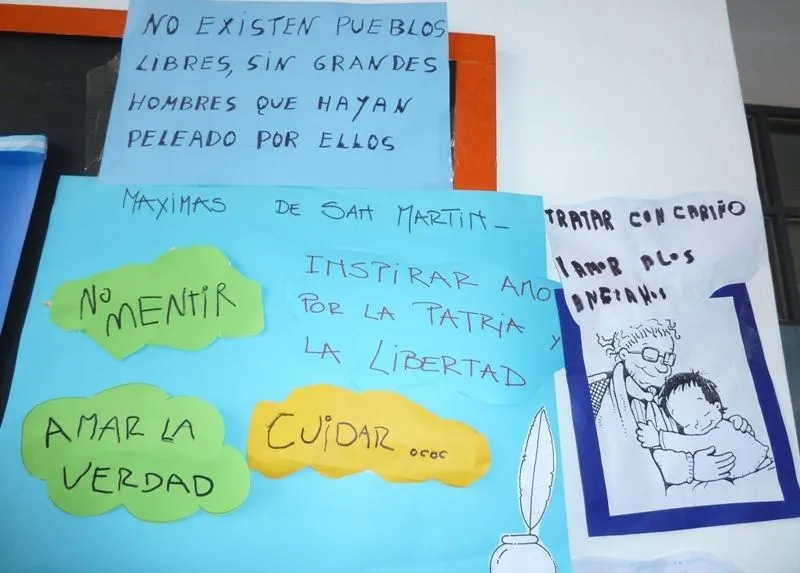 NO EXISTEN PUEBLOS
LIBRES, SIN GRANDES
HOMBRES QUE HAYAN
PELEADO POR ELLOS
MAXIMAS DE SAN MARTIN_
NO
MENTIR
INSPIRAR AMO
POR LA PATRIA Y
LA LIBERTAD
AMAR LA
VERDAD
CUIDAR....
TRATAR CON CARIÑO
Y AMOR A LOS
ANCIANOS